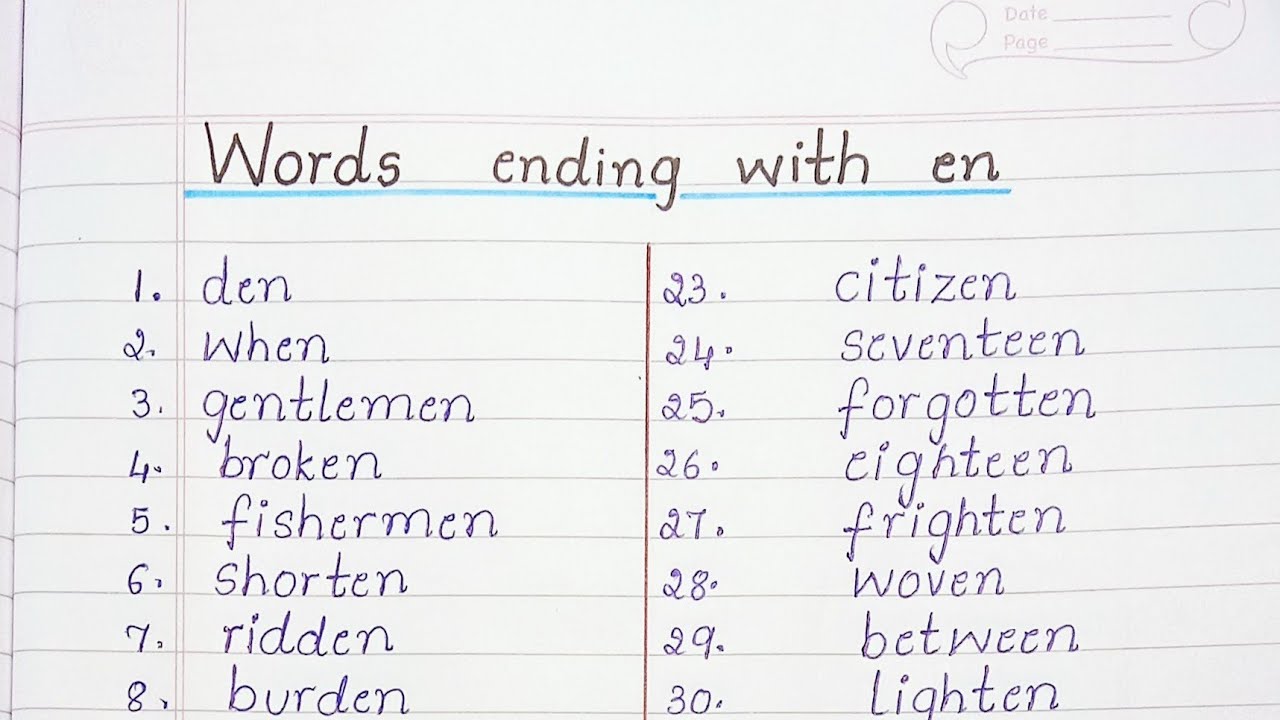 Date
Page
Words ending with en
1. den
2. when
3. gentlemen
4. broken
5. fishermen
6. shorten
7. ridden
8. burden
23. citizen
24. seventeen
25. forgotten
26. eighteen
27. frighten
28. woven
29. between
30. lighten